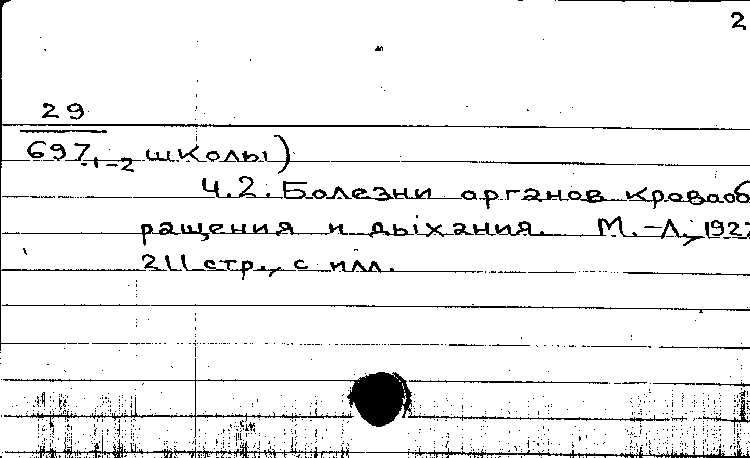 2
29
697 1-2 школы)
Ч.2. Болезни органов кровооб
ращения и дыхания. М.-Л., 1927
211 стр., с илл.